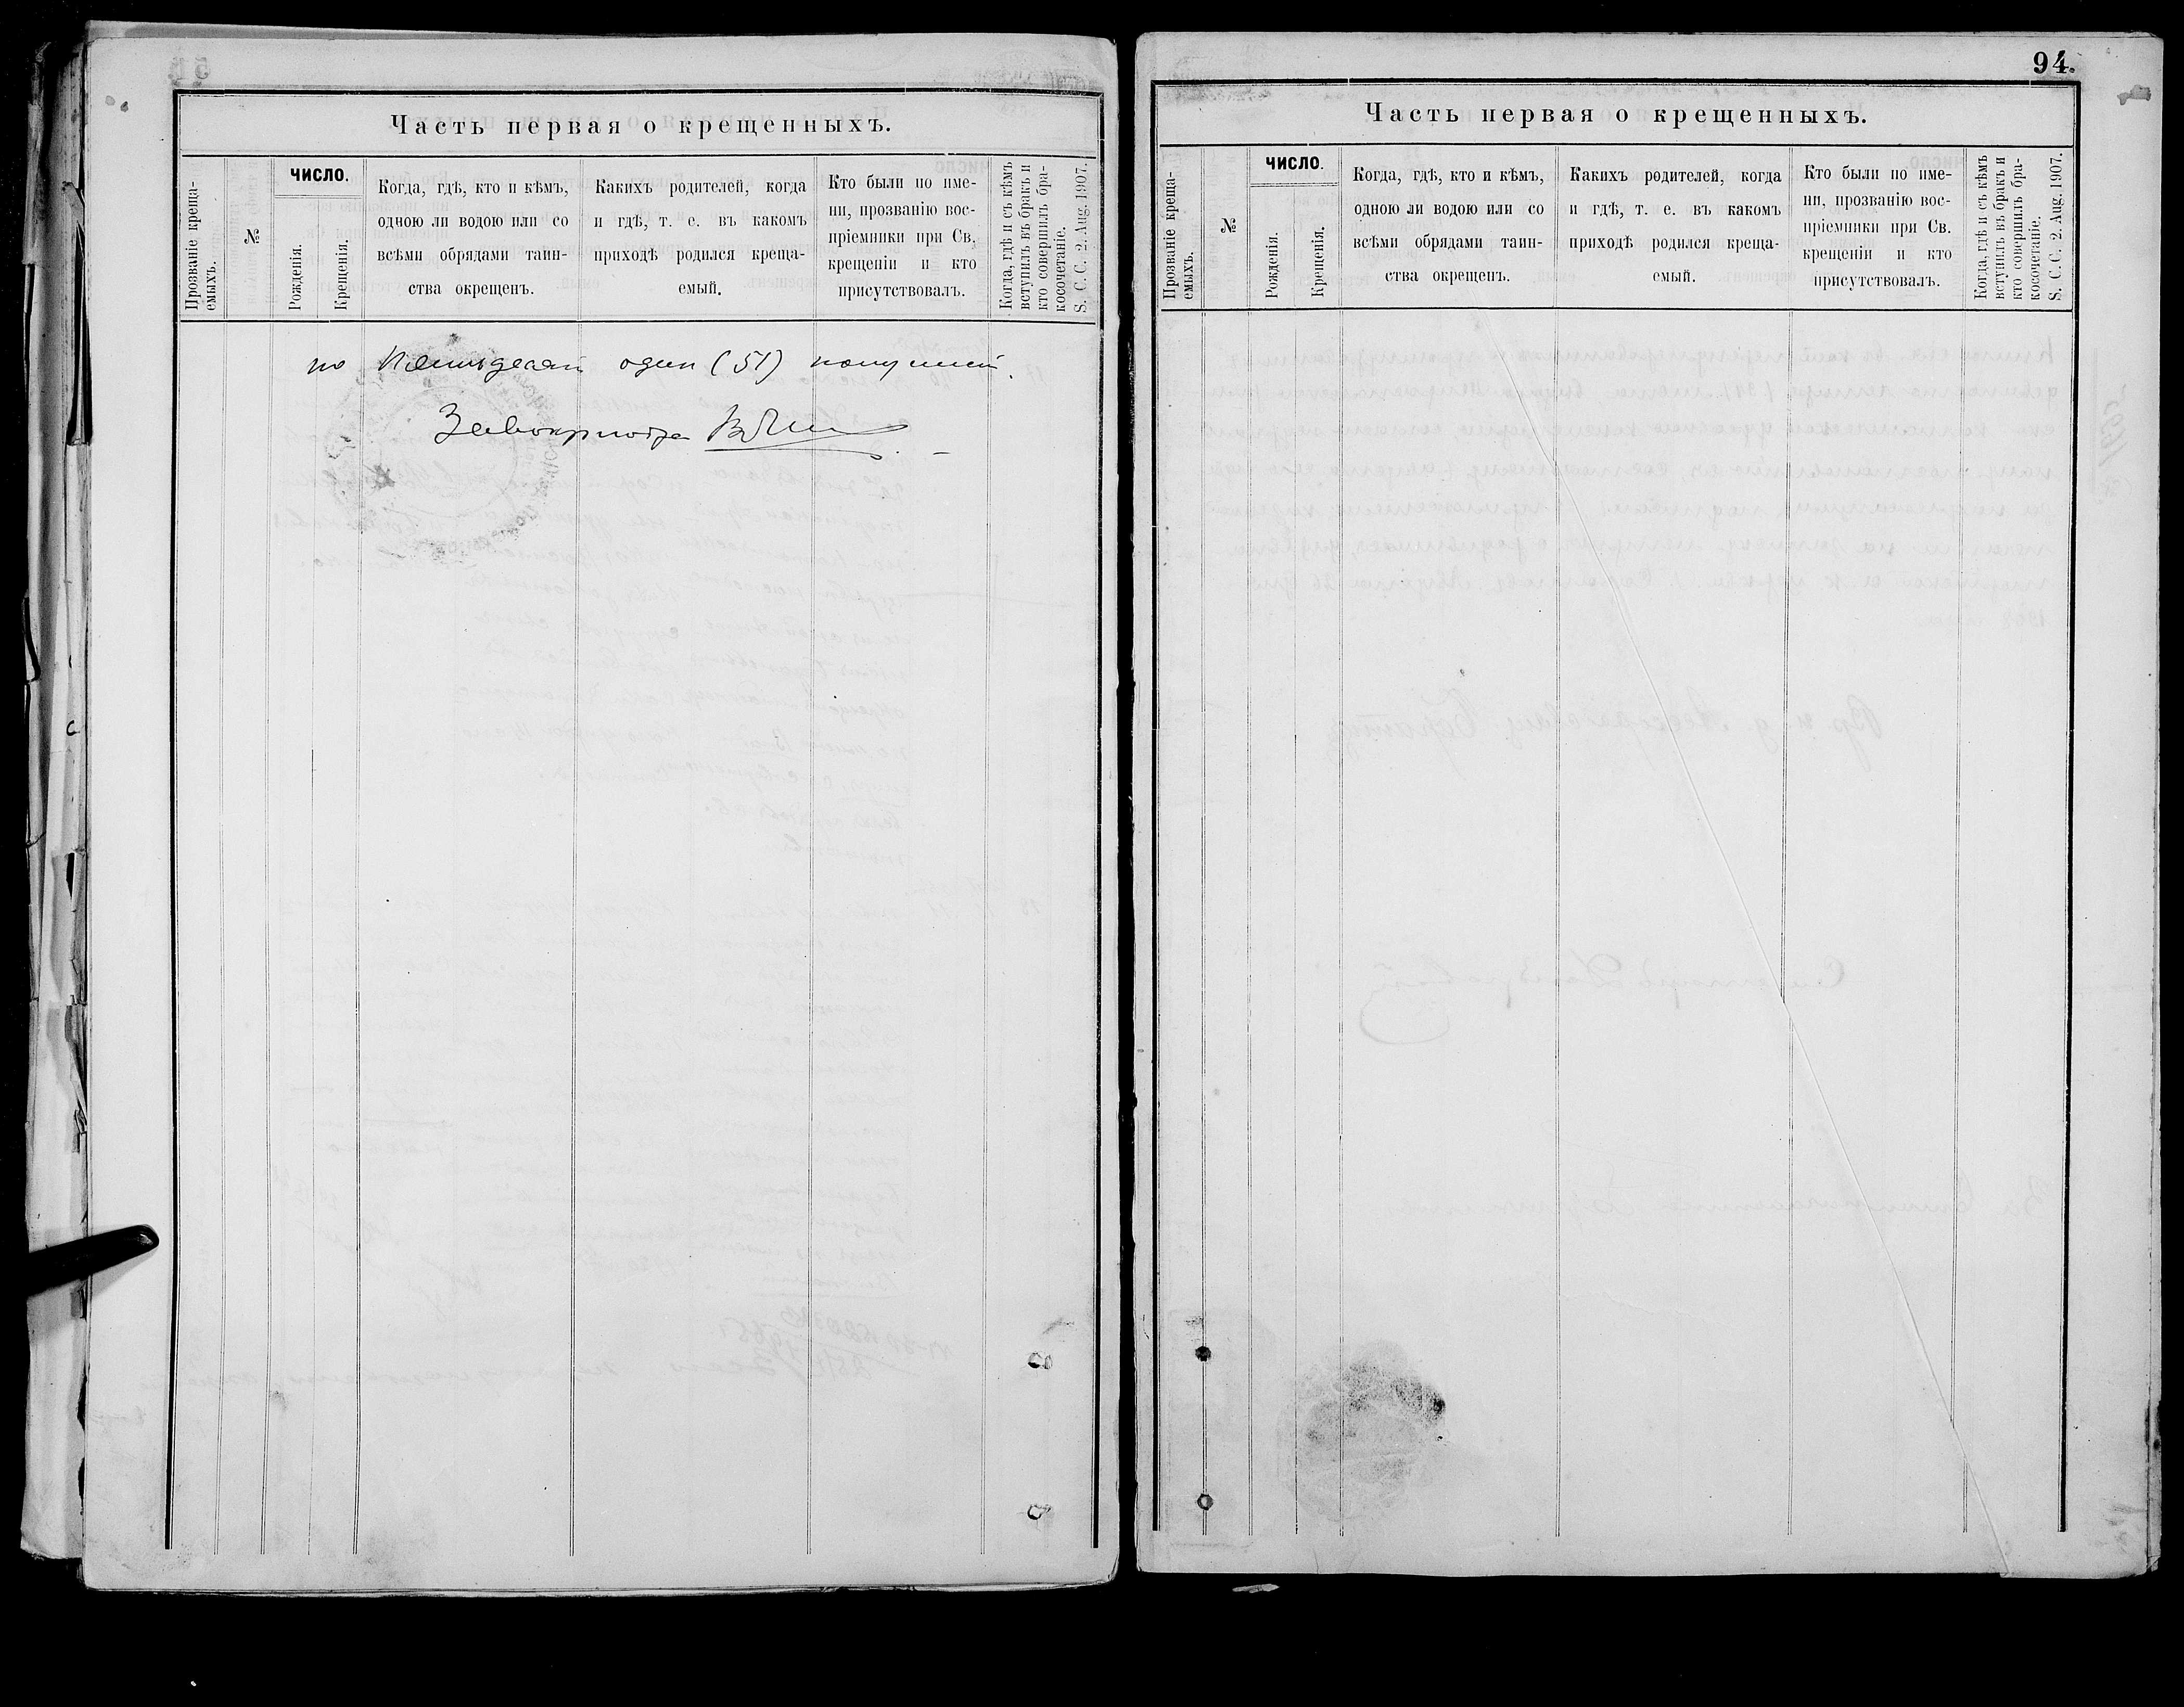 Часть первая о крещенныхъ.
Прозваніе креща-
емыхъ.
№
ЧИСЛО.
Рожденія.
Крещенія.
Когда, гдѣ, кто и кѣмъ,
одною ли водою или со
всѣми обрядами таин-
ства окрещенъ.
Какихъ родителей, когда
и гдѣ, т. е. въ какомъ
приходѣ родился креща-
емый.
Кто были по име-
ни, прозванію вос-
пріемники при Св.
крещеніи и кто
присутствовалъ.
Когда, гдѣ и съ кѣмъ
вступилъ въ бракъ и
кто совершилъ бра-
косочетаніе.
S. C. C. 2. Aug. 1907.
по пятьдесят один (51)
94.
Часть первая о крещенныхъ.
Прозваніе креща-
емыхъ.
№
ЧИСЛО.
Рожденія.
Крещенія.
Когда, гдѣ, кто и кѣмъ,
одною ли водою или со
всѣми обрядами таин-
ства окрещенъ.
Какихъ родителей, когда
и гдѣ, т. е. въ какомъ
приходѣ родился креща-
емый.
Кто были по име-
ни, прозванію вос-
пріемники при Св.
крещеніи и кто
присутствовалъ.
Когда, гдѣ и съ кѣмъ
вступилъ въ бракъ и
кто совершилъ бра-
косочетаніе.
S. C. C. 2. Aug. 1907.